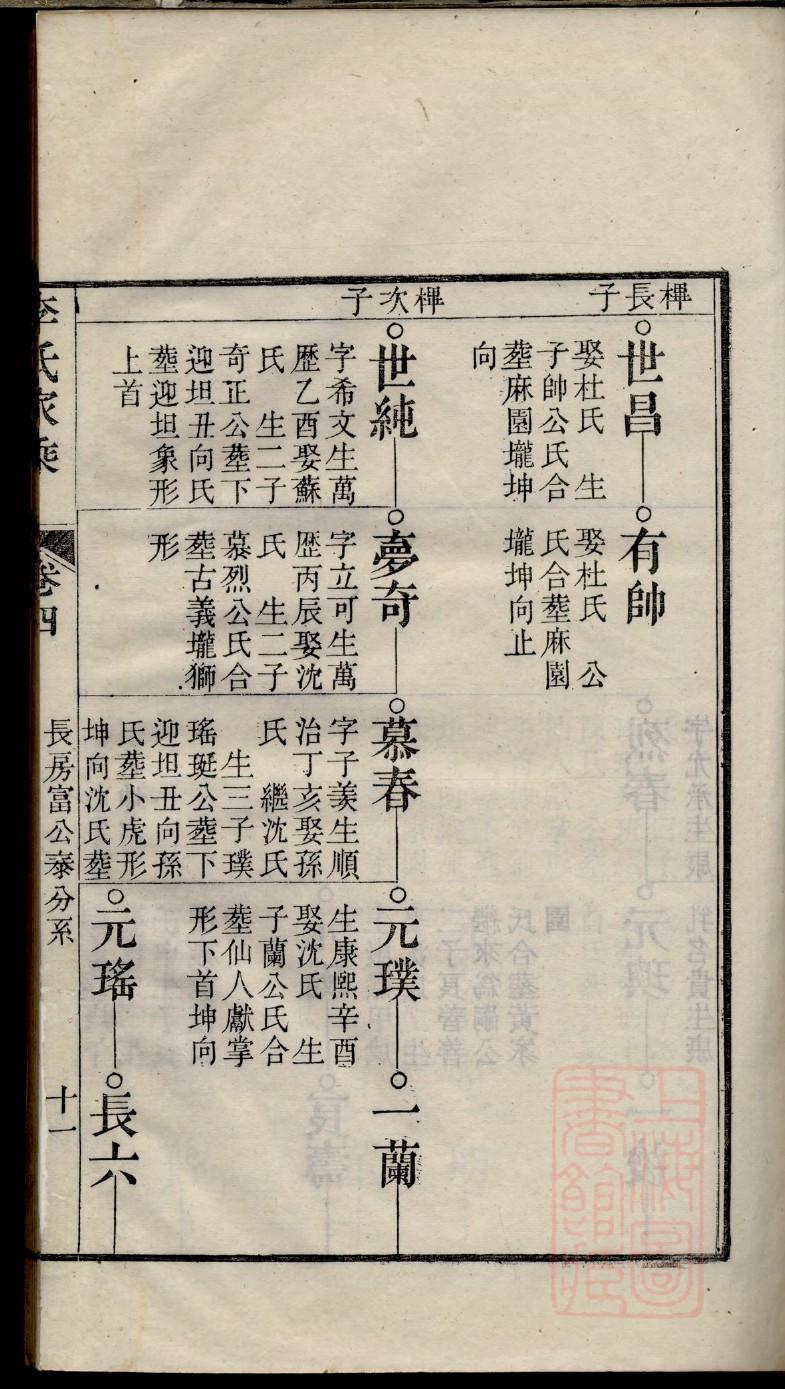 榸長子
世昌
娶杜氏　生
子帥公氏合
塟麻園壠坤
向
有帥
娶杜氏　公
氏合塟麻園
壠坤向止
榸次子
世純
字希文生萬
歷乙酉娶蘇
氏　生二子
奇正公塟下
迎坦丑向氏
塟迎坦象形
上首
夢奇
字立可生萬
歷丙辰娶沈
氏　生二子
慕烈公氏合
塟古義壠獅
形
慕春
字子羙生順
治丁亥娶孫
氏　繼沈氏
生三子璞
瑤珽公塟下
迎坦丑向孫
氏塟小虎形
坤向沈氏塟
元璞
生康熙辛酉
娶沈氏　生
子蘭公氏合
塟仙人獻掌
形下首坤向
一蘭
元瑤
長六
李氏家乘
卷四
長房富公泰分系
十一
上海圖書館藏